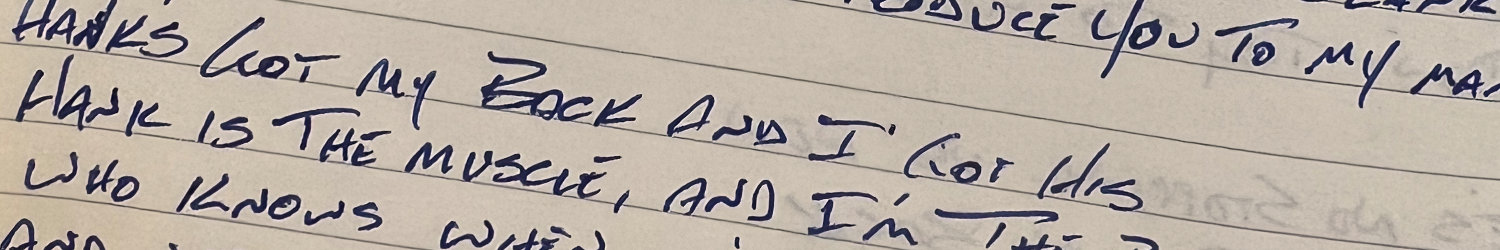 YOU TO MY
HANKS GOT MY BACK AND I GOT HIS
HANK IS THE MUSCLE, AND I'M THE
WHO KNOWS WHEN
AND